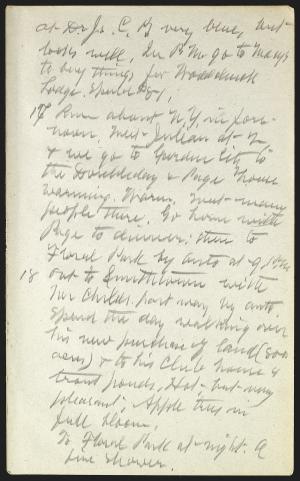 at Dr Js. C. B very blue, but
looks well, Dr B M. go to Macy's
to buy things for Woodchuck
Lodge.
17 Run about N.Y. in fore-
noon. Meet Julian at
& we go to Garden City to
the Doubleday & Page house
warming. Warm. Meet many
people there. Go home with
Page to dinner; then to
Floral Park by auto at 9 P.M.
18 out to Smithtown with
Mr Childs. Part way by auto.
Spend the day walking over
his new purchase of land (500
acres) & to his Club house &
trout ponds. Hot, but very
pleasant; Apple trees in
full bloom.
To Floral Park at night. A
fine shower.